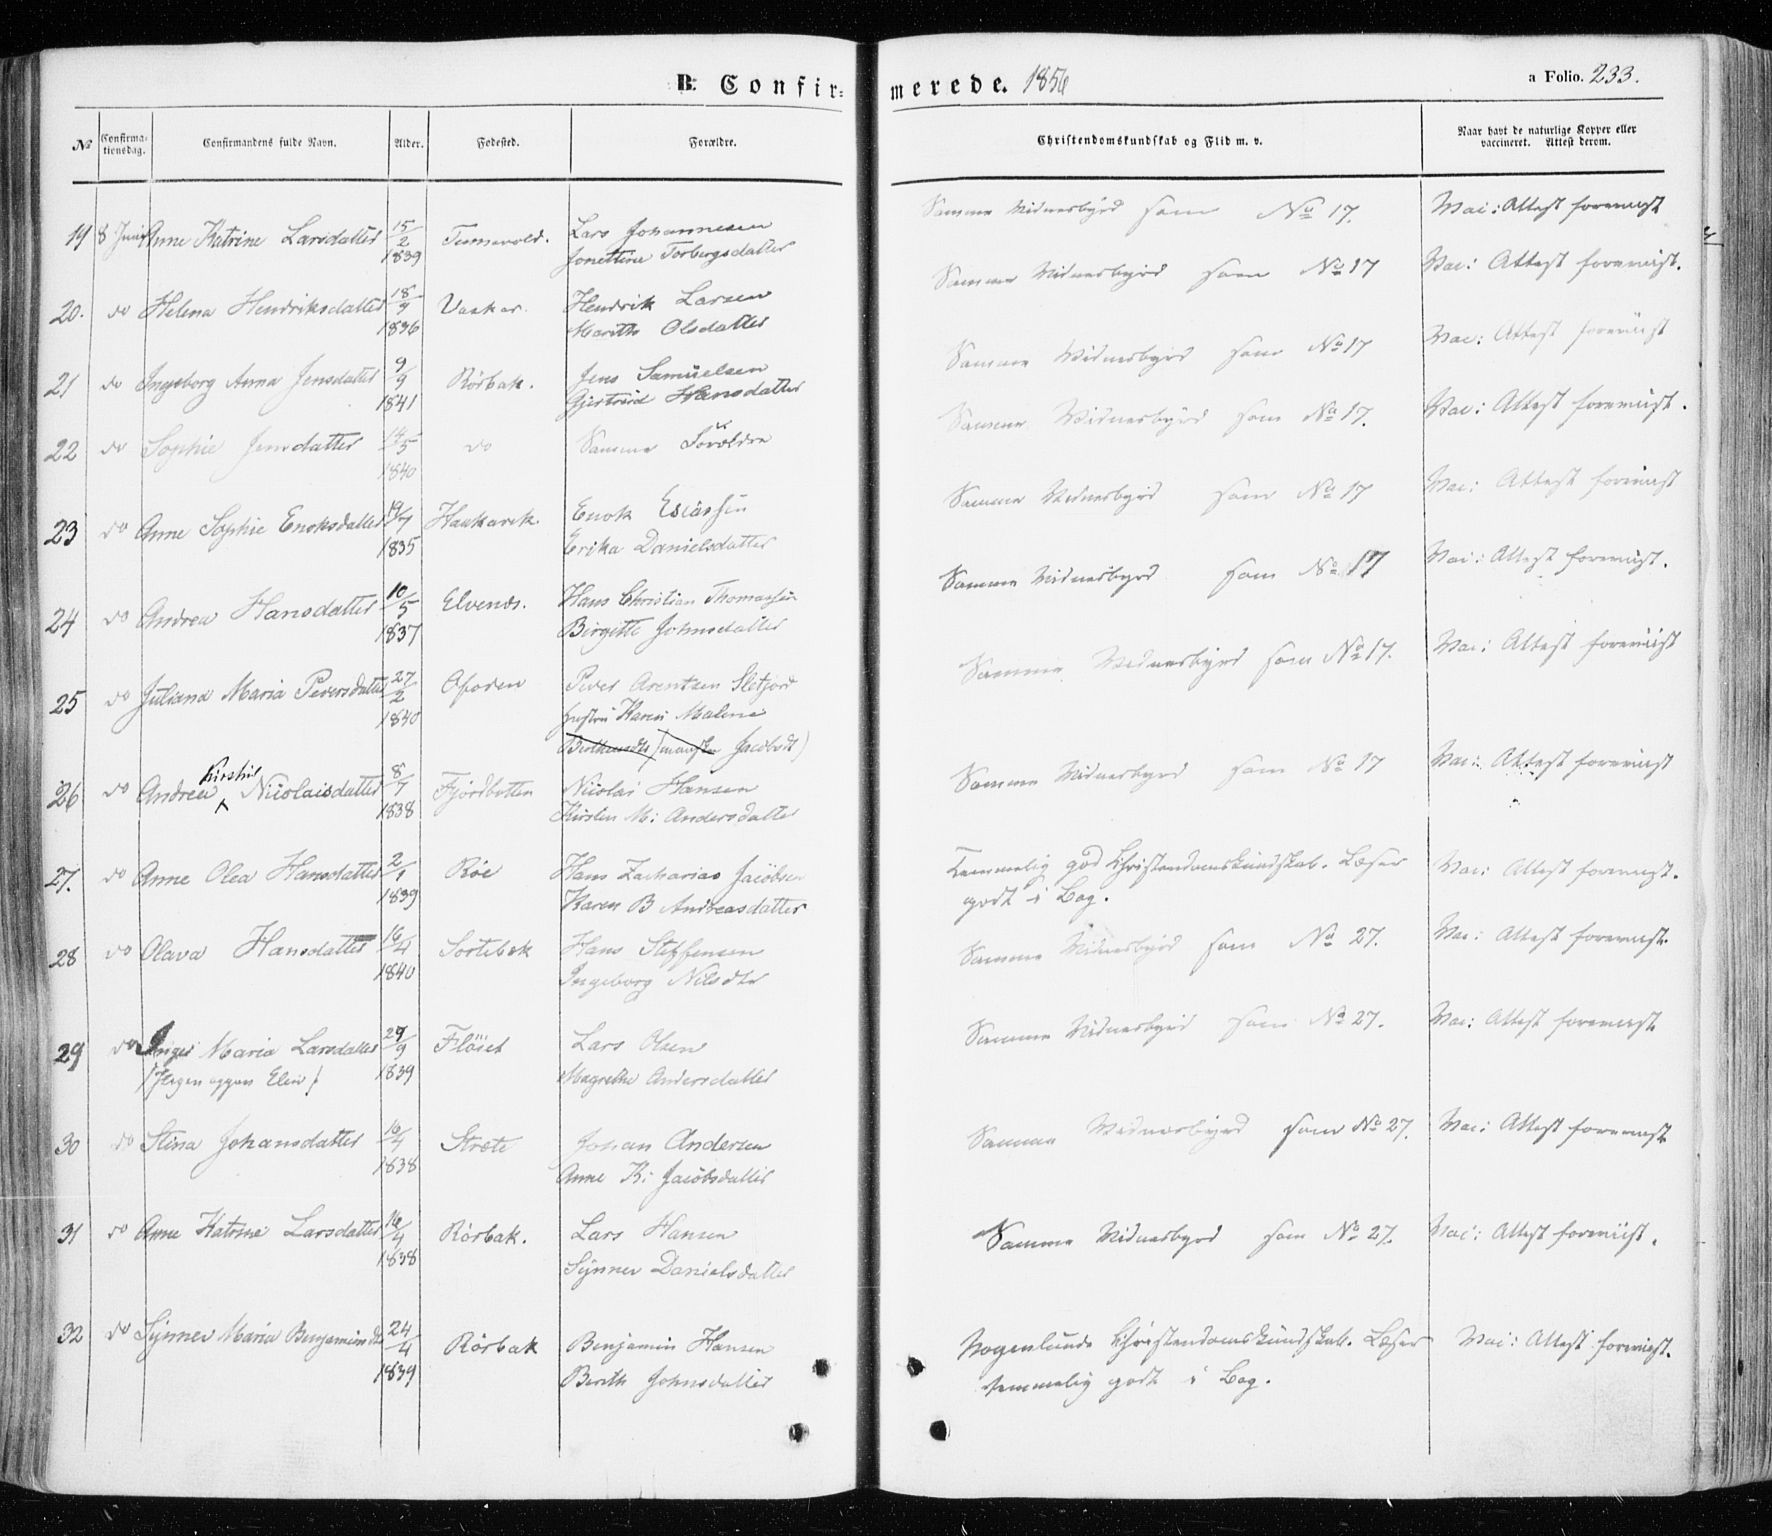 B. Confirmerede. 1856
a Folio. 233.
№ Confirmationsdag. Confirmandens fulde Navn. Alder. Fødested. Forældre. Christendomskundskab og Flid m. v. Naar havt de naturlige Kopper eller vaccineret. Attest derom.
19 8 Juni Anne Katrine Larsdatter 15/2 1839 Lars Johannesen Samme Vidnesbyrd som No 17. Vac: Attest foreviist
Torbergsdatter
20. do Helena Hendriksdatter 18/9 1836 Hendrik Larsen Samme Vidnesbyrd som No 17 Vac: Attest foreviist.
Marithe Olsdatter
21 do Ingeborg Anna Jensdatter 9/9 1841 Rørbak. Jens Samuelsen Samme Vidnesbyrd som No 17 Vac: Attest foreviist
Gjertrud Hansdatter
22 do Sophie Jensdatter 14/5 1840 do Samme Forældre Samme Vidnesbyrd som No 17. Vac: Attest foreviist.
23 do Anne Sophie Enoksdatter 19/7 1835 Haukavik Enok Esiassen Samme Vidnesbyrd som No 17 Vac: Attest foreviist
Erika Danielsdatter
24 do Andrea Hansdatter 10/5 1837 Elvenes. Hans Christian Thomassen Samme Vidnesbyrd som No 17 Vac: Attest foreviist.
Birgitte Johnsdatter
25 do Juliana Maria Pedersdatter 27/2 1840 Ofoden Peder Arentsen Sletjord Samme Vidnesbyrd som No 17. Vac: Attest foreviist
Hustru Karen Malene
Jacobsdt)
26 do Andrea Kirstin Nicolaisdatter 8/7 1838 Fjordbotten Nicolai Hansen Samme Vidnesbyrd som No 17 Vac: Attest foreviist
Kirsten M: Andersdatter
27. do Anne Olea Hansdatter 2/1 1839 Røe Hans Zacharias Jacobsen Temmelig god Christendomskundskab. Læser Vac: Attest foreviist.
Karen B Andreasdatter godt i Bog.
28 do Olava Hansdatter 16/4 1840 Sortebek Hans Steffensen Samme Vidnesbyrd som No 27. Vac: Attest foreviist.
Ingeborg Nilsdtr
29 do Inger Maria Larsdatter 29/9 1839 Flöset Lars Olsen Samme Vidnesbyrd som No 27. Vac: Attest foreviist
Elen) Magrethe Andersdatter
30 do Stina Johansdatter 16/4 1838 Stræte Johan Andersen Samme Vidnesbyrd som No 27. Vac: Attest foreviist
Anne K: Jacobsdatter
31 do Anne Katrine Larsdatter 16/4 1838 Rørbak. Lars Hansen Samme Vidnesbyrd som No 27. Vac: Attest foreviist.
Synnev Danielsdatter
32 do Synnev Maria Benjaminsdtr 24/4 1839 Rørbak Benjamin Hansen Nogenlunde Christendomskundskab. Læser Vac: Attest foreviist.
Berith Johnsdatter temmelig godt i Bog.